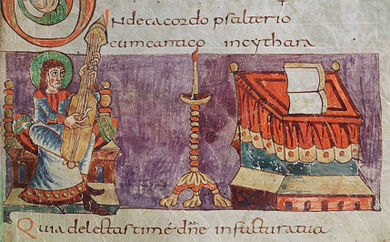 IN decacordo psalterio
cumcantico incythara
Quia delectastime dñe infacturatua